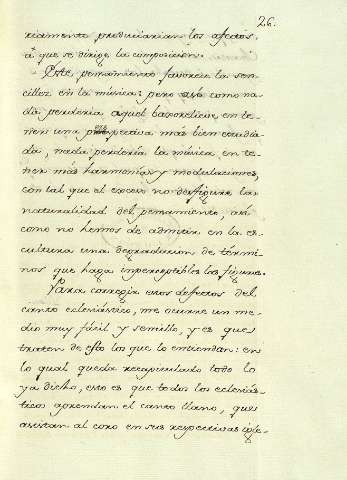 26.
riamente producirian los afectos,
á que se dirige la composicion.
Este pensamiento favorece la sen-
cillez en la música: pero asi como na-
da perderia aquel baxorelieve, en te-
ner una perspectiva mas bien estudia
da, nada perdería la música, en te-
ner más harmonías y modulaciones,
con tal que el exceso no desfigure la
naturalidad del pensamiento, asi
como no hemos de admitir en la es-
cultura una degradacion de térmi-
nos que haga imperceptibles las figuras.
Para corregir estos defectos del
canto eclesiástico, me ocurre un me-
dio muy fácil y sencillo, y es que
traten de esto los que lo entiendan: en
lo qual queda recapitulado todo lo
ya dicho, esto es que todos los eclesiás-
ticos aprendan el canto llano, que
asistan al coro en sus respectivas igle-